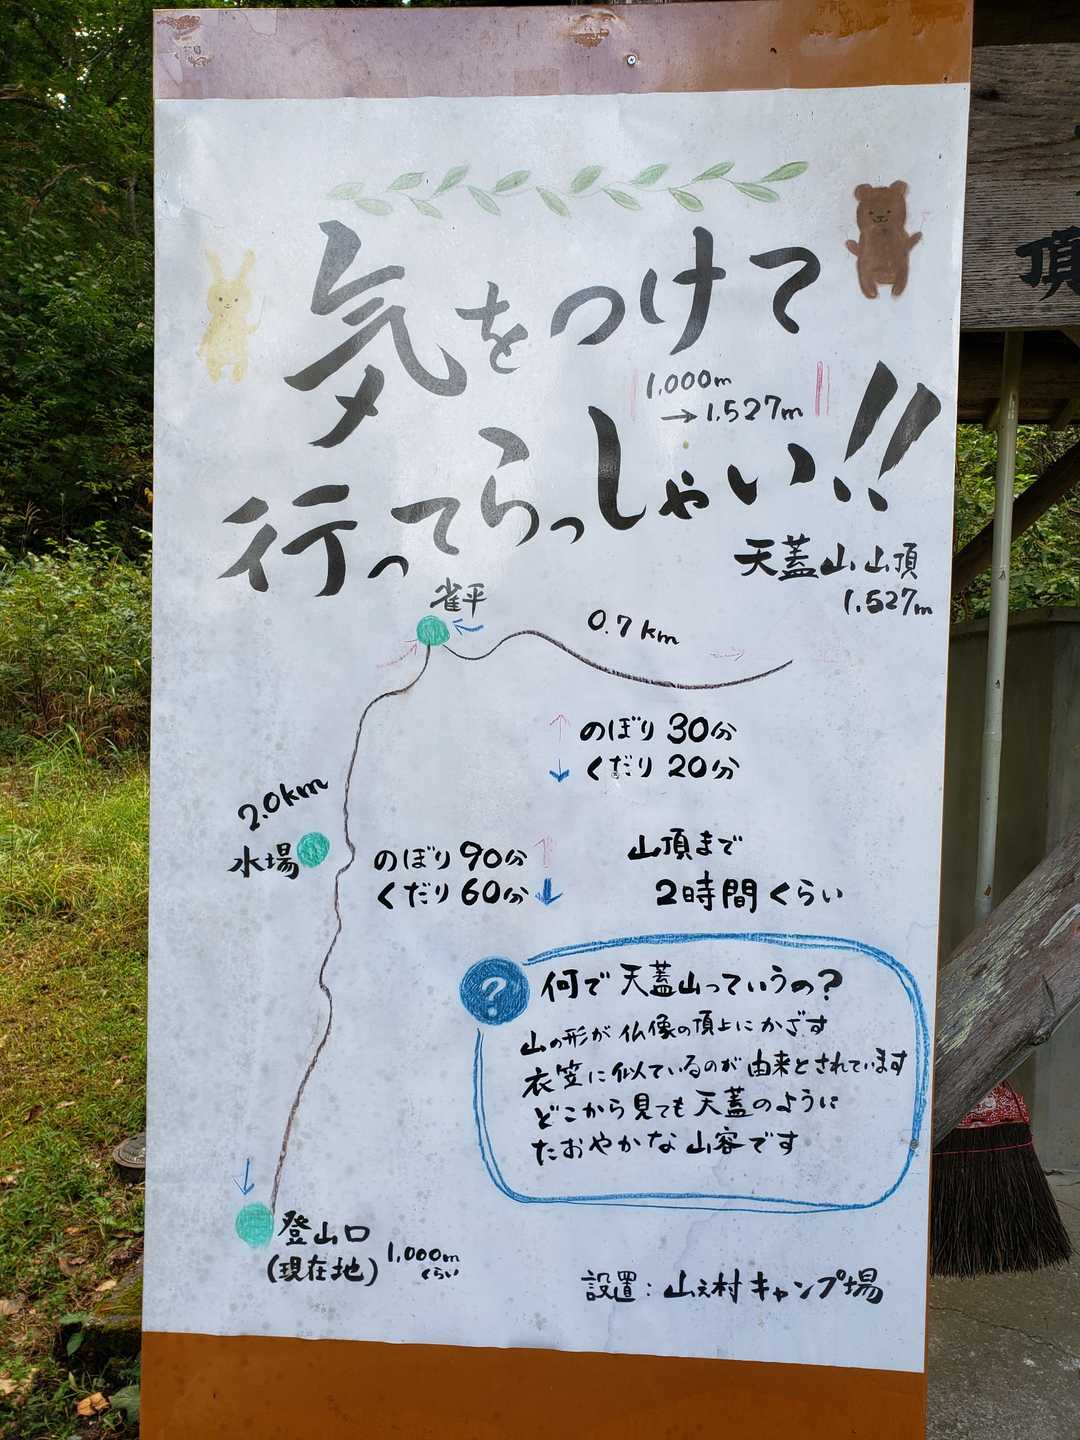 気をつけて
1,000m
→1,527m
行ってらっしゃい!!
天蓋山山頂
1,527m
雀平
0.7km
のぼり30分
くだり20分
2.0km
水場
のぼり90分
くだり60分
山頂まで
2時間くらい
?
何で天蓋山っていうの?
山の形が仏像の頂上にかざす
衣笠に似ているのが由来とされています
どこから見ても天蓋のように
たおやかな山容です
登山口
(現在地)
1,000m
くらい
設置:山之村キャンプ場
頂